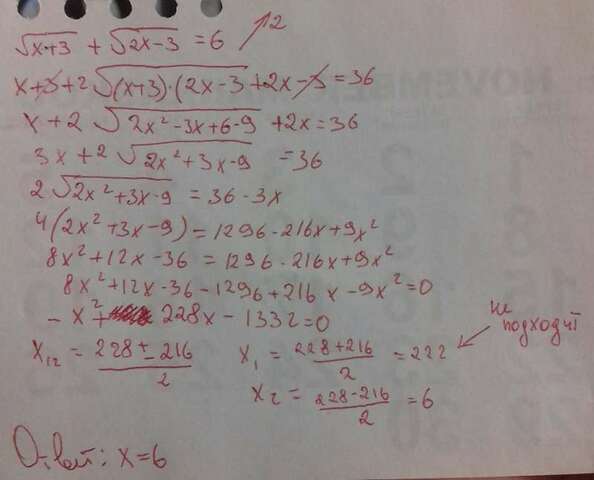 √x+3 + √2x-3 = 6 ↗2
x+3+2√(x+3)·(2x-3 +2x-3=36
x+2√2x²-3x+6-9 +2x=36
3x+2√2x²+3x-9 =36
2√2x²+3x-9 = 36-3x
4(2x²+3x-9)=1296-216x+9x²
8x²+12x-36 = 1296-216x+9x²
8x²+12x-36-1296+216x-9x²=0
-x²+ 228x-1332=0
x₁₂ = 228±216/2 x₁ = 228+216/2 =222 ← не подходит
x₂ = 228-216/2 =6
Ответ: x=6